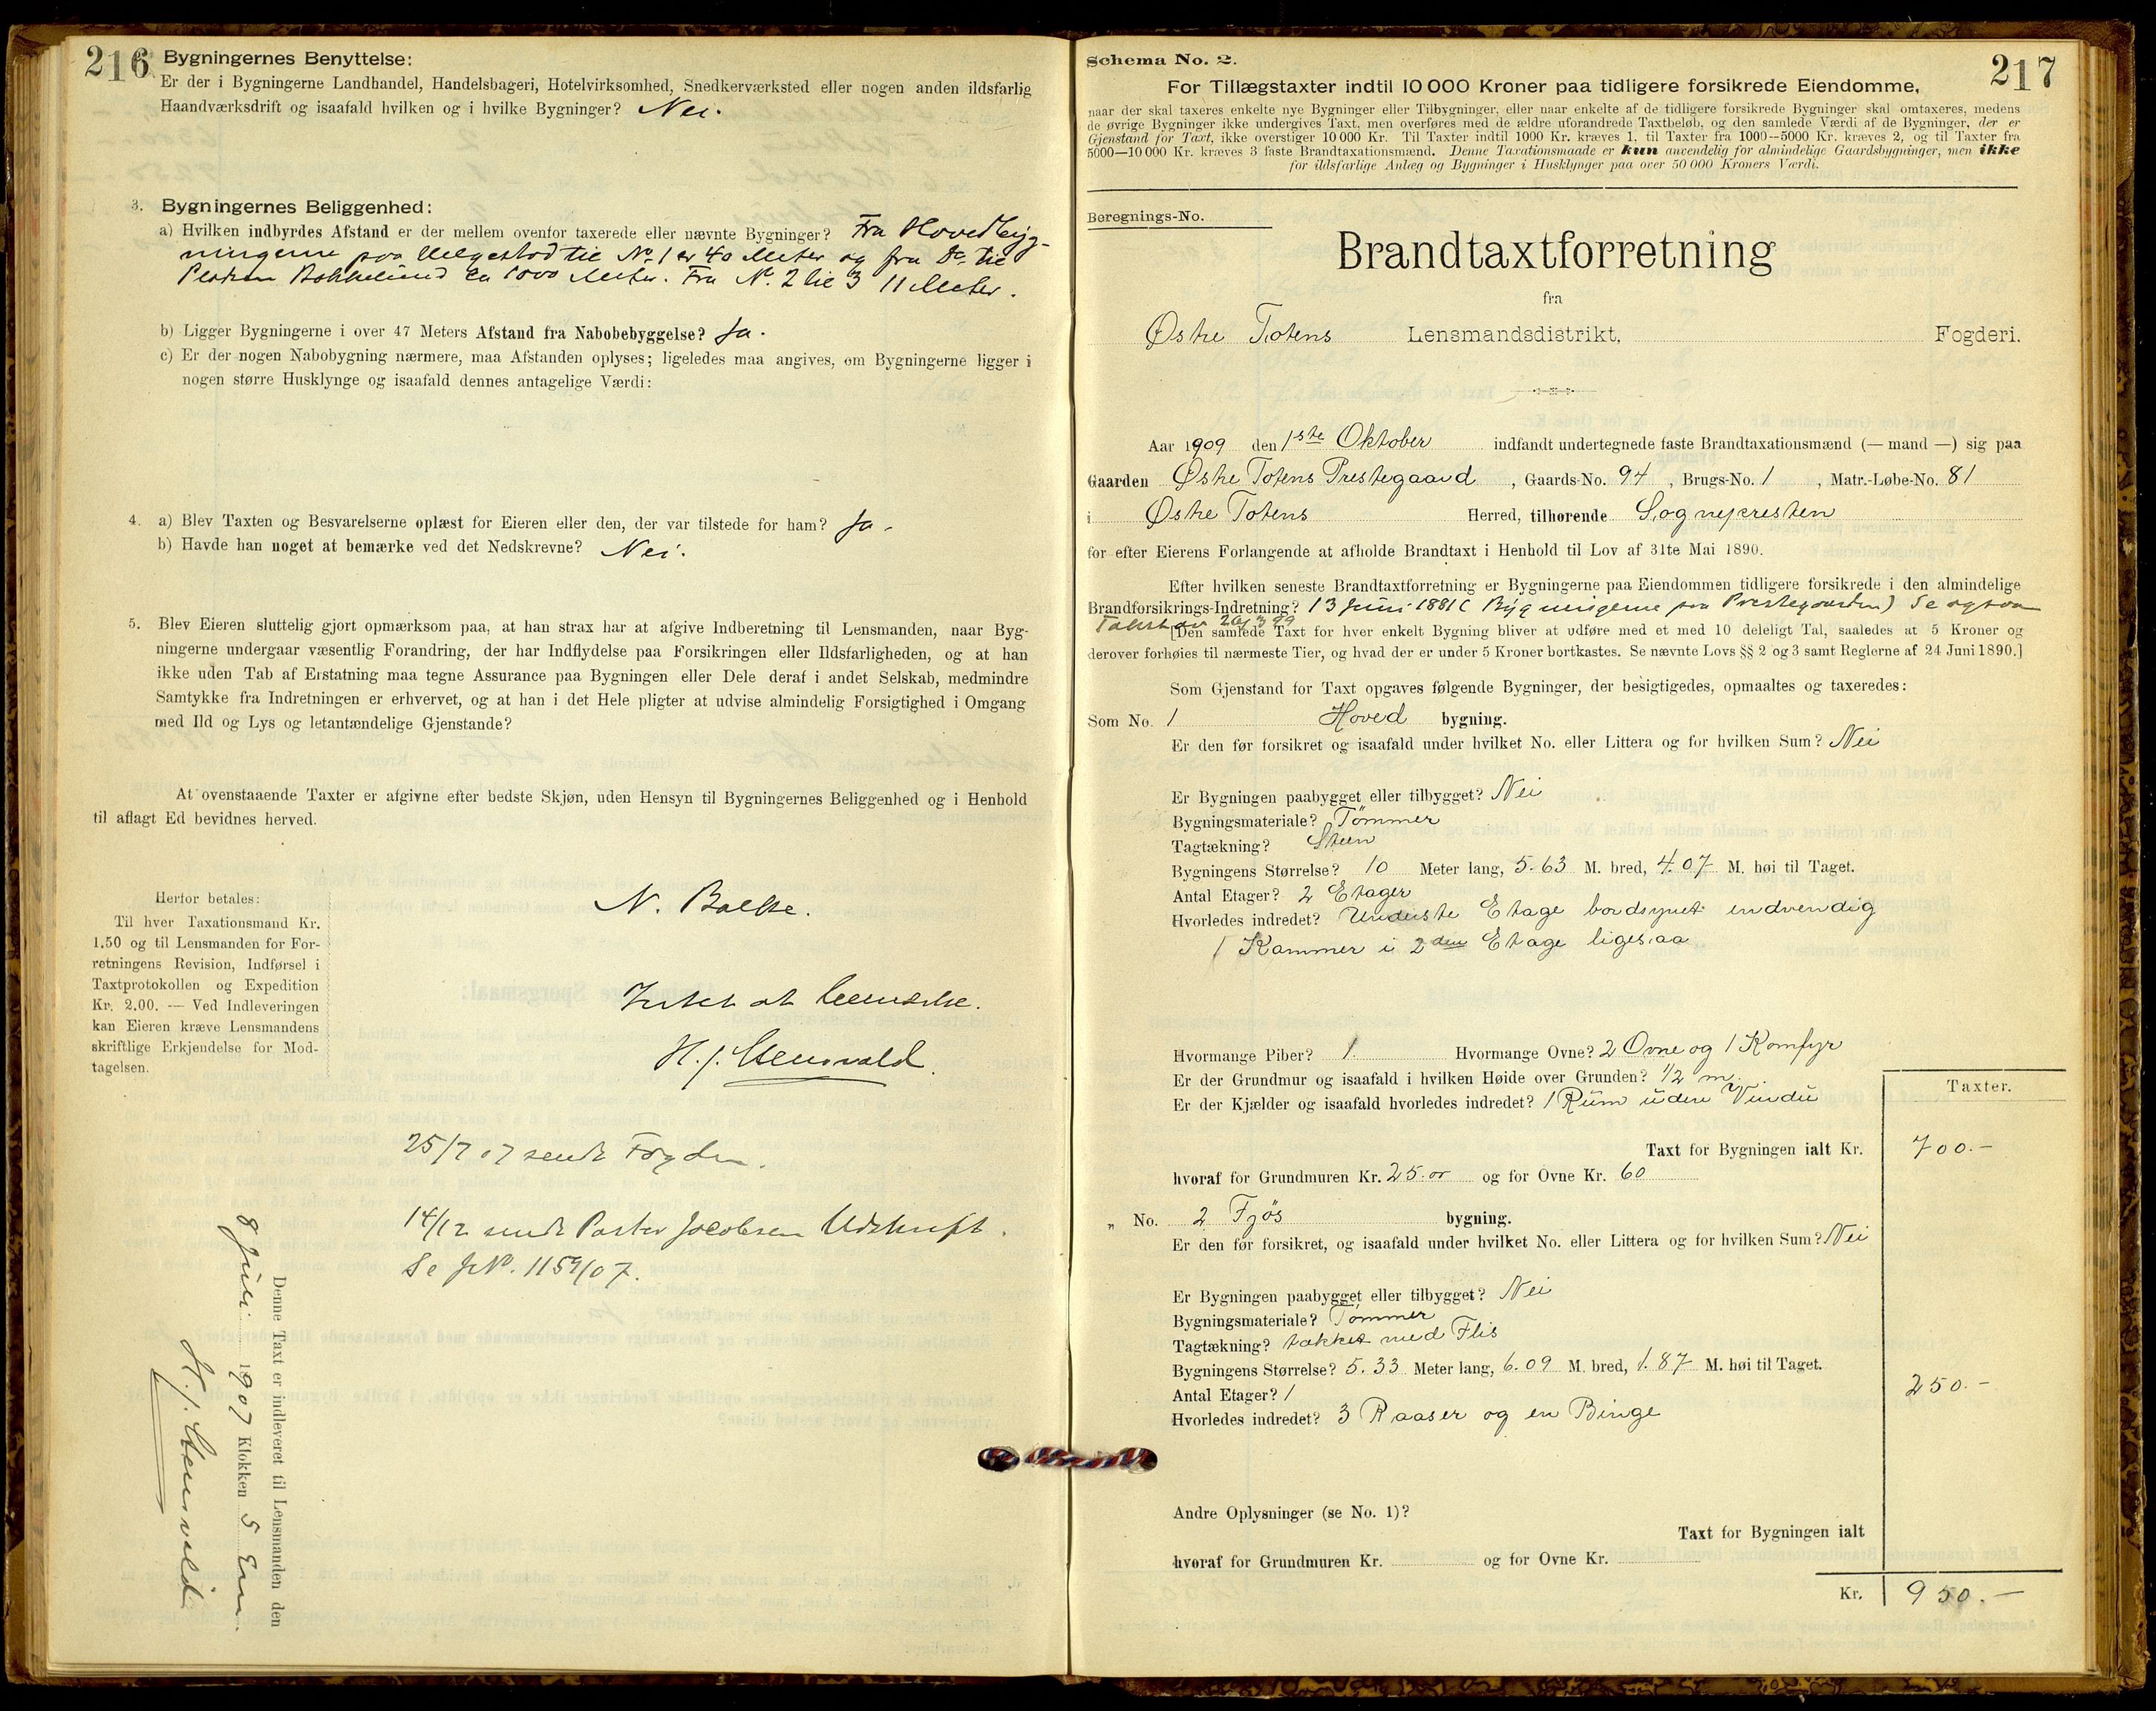 216
Bygningernes Benyttelse:
Er der i Bygningerne Landhandel, Handelsbageri, Hotelvirksomhed, Snedkerværksted eller nogen anden ildsfarlig
Haandværksdrift og isaafald hvilken og i hvilke Bygninger? Nei.
3. Bygningernes Beliggenhed:
a) Hvilken indbyrdes Afstand er der mellem ovenfor taxerede eller nævnte Bygninger? Fra Hovedbyg-
ningerne paa Helgestad til No 1 er 40 Meter og fra Do til
Pladsen ca 1000 Meter. Fra No. 2 til 3 11 Meter.
b) Ligger Bygningerne i over 47 Meters Afstand fra Nabobebyggelse? Ja.
c) Er der nogen Nabobygning nærmere, maa Afstanden oplyses; ligeledes maa angives, om Bygningerne ligger i
nogen større Husklynge og isaafald dennes antagelige Værdi:
4. a) Blev Taxten og Besvarelserne oplæst for Eieren eller den, der var tilstede for ham? Ja.
b) Havde han noget at bemærke ved det Nedskrevne? Nei.
5. Blev Eieren sluttelig gjort opmærksom paa, at han strax har at afgive Indberetning til Lensmanden, naar Byg-
ningerne undergaar væsentlig Forandring, der har Indflydelse paa Forsikringen eller Ildsfarligheden, og at han
ikke uden Tab af Erstatning maa tegne Assurance paa Bygningen eller Dele deraf i andet Selskab, medmindre
Samtykke fra Indretningen er erhvervet, og at han i det Hele pligter at udvise almindelig Forsigtighed i Omgang
med Ild og Lys og letantændelige Gjenstande?
At ovenstaaende Taxter er afgivne efter bedste Skjøn, uden Hensyn til Bygningernes Beliggenhed og i Henhold
til aflagt Ed bevidnes herved.
N. Balke.
H. J. Stensvold.
Herfor betales:
Til hver Taxationsmand Kr.
1.50 og til Lensmanden for For-
retningens Revision, Indførsel i
Taxtprotokollen og Expedition
Kr. 2.00. — Ved Indleveringen
kan Eieren kræve Lensmandens
skriftlige Erkjendelse for Mod-
tagelsen.
25/7 07 sendt Fogden.
14/12 sendt Pastor Jacobsen Udskrift.
Se J.No. 1159/07.
Denne Taxt er indleveret til Lensmanden den
8 Juli 1907 Klokken 5 Em.
H. J. Stensvold
217
Schema No. 2.
For Tillægstaxter indtil 10 000 Kroner paa tidligere forsikrede Eiendomme,
naar der skal taxeres enkelte nye Bygninger eller Tilbygninger, eller naar enkelte af de tidligere forsikrede Bygninger skal omtaxeres, medens
de øvrige Bygninger ikke undergives Taxt, men overføres med de ældre uforandrede Taxtbeløb, og den samlede Værdi af de Bygninger, der er
Gjenstand for Taxt, ikke overstiger 10 000 Kr. Til Taxter indtil 1000 Kr. kræves 1, til Taxter fra 1000—5000 Kr. kræves 2, og til Taxter fra
5000—10 000 Kr. kræves 3 faste Brandtaxationsmænd. Denne Taxationsmaade er kun anvendelig for almindelige Gaardsbygninger, men ikke
for ildsfarlige Anlæg og Bygninger i Husklynger paa over 50 000 Kroners Værdi.
Beregnings-No.
Brandtaxtforretning
fra
Østre Totens Lensmandsdistrikt, Fogderi.
Aar 1909 den 1ste Oktober indfandt undertegnede faste Brandtaxationsmænd (— mand —) sig paa
Gaarden Østre Totens Prestegaard, Gaards-No. 94, Brugs-No. 1, Matr.-Løbe-No. 81
i Østre Totens Herred, tilhørende Sognepresten
for efter Eierens Forlangende at afholde Brandtaxt i Henhold til Lov af 31te Mai 1890.
Efter hvilken seneste Brandtaxtforretning er Bygningerne paa Eiendommen tidligere forsikrede i den almindelige
Brandforsikrings-Indretning? 13 Juni 1881 (Bygningerne paa Prestegaarden) Se ogsaa
Takst av 26/3 99
[Den samlede Taxt for hver enkelt Bygning bliver at udføre med et med 10 deleligt Tal, saaledes at 5 Kroner og
derover forhøies til nærmeste Tier, og hvad der er under 5 Kroner bortkastes. Se nævnte Lovs §§ 2 og 3 samt Reglerne af 24 Juni 1890.]
Som Gjenstand for Taxt opgaves følgende Bygninger, der besigtigedes, opmaaltes og taxeredes:
Som No. 1 Hoved bygning.
Er den før forsikret og isaafald under hvilket No. eller Littera og for hvilken Sum? Nei
Er Bygningen paabygget eller tilbygget? Nei
Bygningsmateriale? Tömmer
Tagtækning? Steen
Bygningens Størrelse? 10 Meter lang, 5.63 M. bred, 4.07 M. høi til Taget.
Antal Etager? 2 Etager
Hvorledes indredet? Underste Etage bordsynet indvendig
1 Kammer i 2den Etage ligesaa
Hvormange Piber? 1. Hvormange Ovne? 2 Ovne og 1 Komfyr
Er der Grundmur og isaafald i hvilken Høide over Grunden? 1/2 m.
Er der Kjælder og isaafald hvorledes indredet? 1 Rum uden Vindu
Taxter.
Taxt for Bygningen ialt Kr. 700.—
hvoraf for Grundmuren Kr. 25.00 og for Ovne Kr. 60
„ No. 2 Fjös bygning.
Er den før forsikret, og isaafald under hvilket No. eller Littera og for hvilken Sum? Nei
Er Bygningen paabygget eller tilbygget? Nei
Bygningsmateriale? Tömmer
Tagtækning? takket med Flis
Bygningens Størrelse? 5.33 Meter lang, 6.09 M. bred, 1.87 M. høi til Taget.
Antal Etager? 1
250.—
Hvorledes indredet? 3 Baaser og en Binge
Andre Oplysninger (se No. 1)?
Taxt for Bygningen ialt
hvoraf for Grundmuren Kr. og for Ovne Kr.
Kr. 950.—